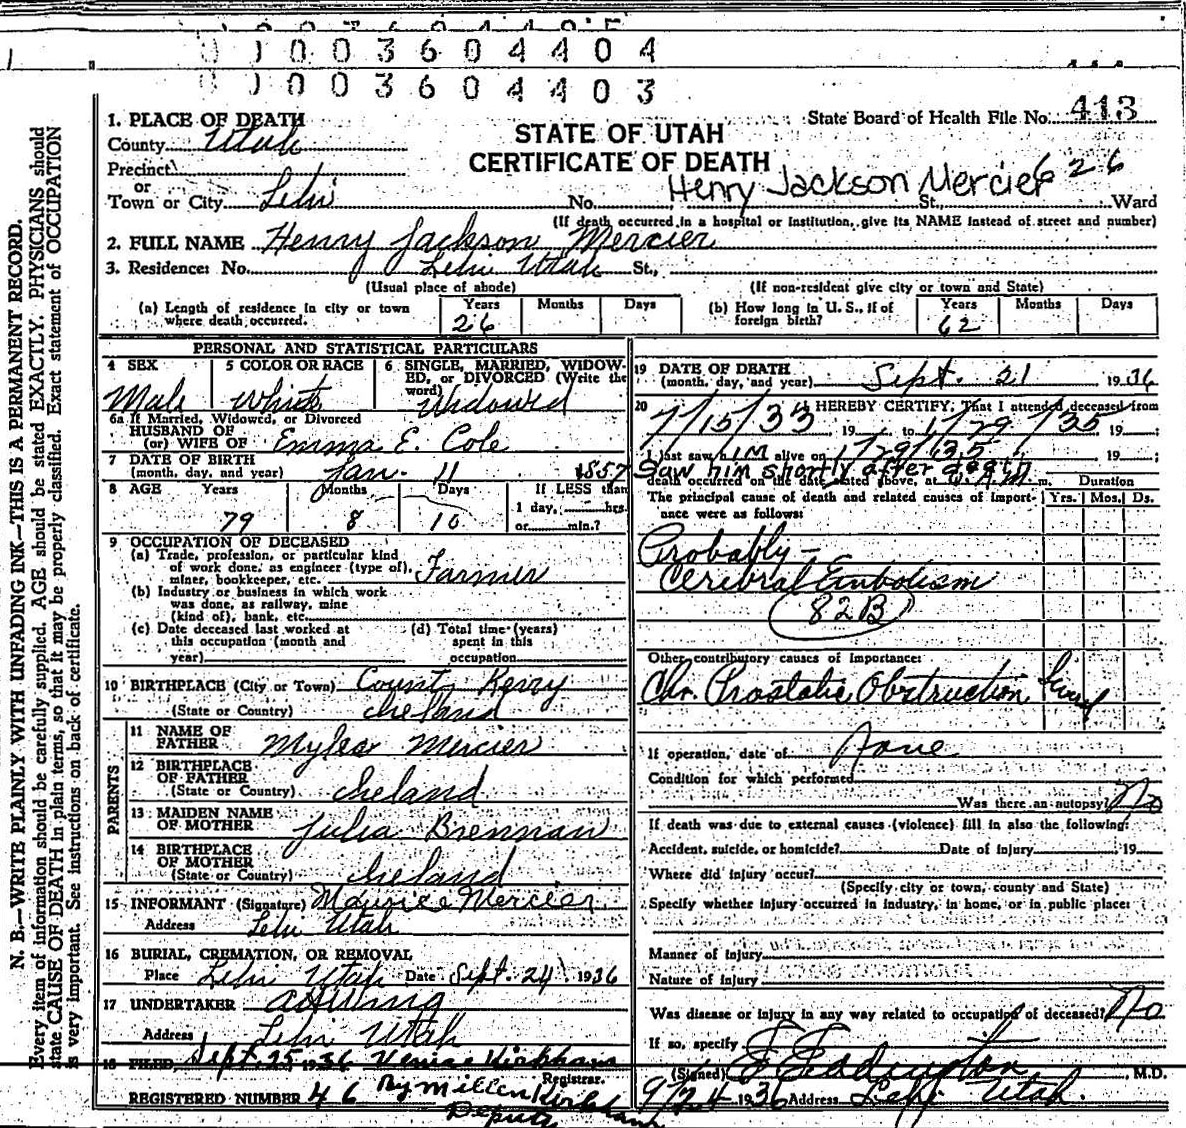 0 0 0 3 6 0 4 4 0 4
0 0 0 3 6 0 4 4 0 3
1. PLACE OF DEATH
State Board of Health File No. 413
County Utah
STATE OF UTAH
CERTIFICATE OF DEATH
Precinct
or
Henry Jackson Mercier 626
Town or City Lehi No. St., Ward
(If death occurred in a hospital or institution, give its NAME instead of street and number)
2. FULL NAME Henry Jackson Mercier
3. Residence: No. Lehi Utah St.,
(Usual place of abode) (If non-resident give city or town and State)
(a) Length of residence in city or town where death occurred. Years 26 Months Days
(b) How long in U. S., if of foreign birth? Years 62 Months Days
PERSONAL AND STATISTICAL PARTICULARS
4 SEX Male
5 COLOR OR RACE White
6 SINGLE, MARRIED, WIDOWED, or DIVORCED (Write the word) Widowed
6a If Married, Widowed, or Divorced
HUSBAND OF
(or) WIFE OF Emma E. Cole
7 DATE OF BIRTH
(month, day, and year) Jan. 11 1857
8 AGE Years 79 Months 8 Days 10 If LESS than 1 day, hrs. or min.?
9 OCCUPATION OF DECEASED
(a) Trade, profession, or particular kind
of work done, as engineer (type of),
miner, bookkeeper, etc. Farmer
(b) Industry or business in which work
was done, as railway, mine
(kind of), bank, etc.
(c) Date deceased last worked at
this occupation (month and
year)
(d) Total time (years)
spent in this
occupation
10 BIRTHPLACE (City or Town) County Kerry
(State or Country) Ireland
PARENTS
11 NAME OF
FATHER Myles Mercier
12 BIRTHPLACE
OF FATHER
(State or Country) Ireland
13 MAIDEN NAME
OF MOTHER Julia Brennan
14 BIRTHPLACE
OF MOTHER
(State or Country) Ireland
15 INFORMANT (Signature) Maurice Mercier
Address Lehi Utah
16 BURIAL, CREMATION, OR REMOVAL
Place Lehi Utah Date Sept. 24 1936
17 UNDERTAKER
Address Lehi Utah
18 FILED, Sept. 25 1936 Kirkham
Registrar.
REGISTERED NUMBER 46 By Kirkham
Deputy
19 DATE OF DEATH
(month, day, and year) Sept. 21 1936
20 I HEREBY CERTIFY, That I attended deceased from
7/15/33 19 to 1/29/35 19 ;
I last saw him alive on 1/29/35 19 ;
Saw him shortly after death
death occurred on the date stated above, at A.M. m. Duration
The principal cause of death and related causes of importance were as follows: Yrs. Mos. Ds.
Probably -
Cerebral Embolism
82B
Other contributory causes of importance:
Chr. Prostatic Obstruction
If operation, date of None
Condition for which performed
Was there an autopsy? No
If death was due to external causes (violence) fill in also the following:
Accident, suicide, or homicide? Date of injury 19
Where did injury occur?
(Specify city or town, county and State)
Specify whether injury occurred in industry, in home, or in public place:
Manner of injury
Nature of injury
Was disease or injury in any way related to occupation of deceased? No
If so, specify
(Signed) Eddington M.D.
9/24 1936 Address Lehi Utah.
N. B.—WRITE PLAINLY WITH UNFADING INK—THIS IS A PERMANENT RECORD.
Every item of information should be carefully supplied. AGE should be stated EXACTLY. PHYSICIANS should
state CAUSE OF DEATH in plain terms, so that it may be properly classified. Exact statement of OCCUPATION
is very important. See instructions on back of certificate.